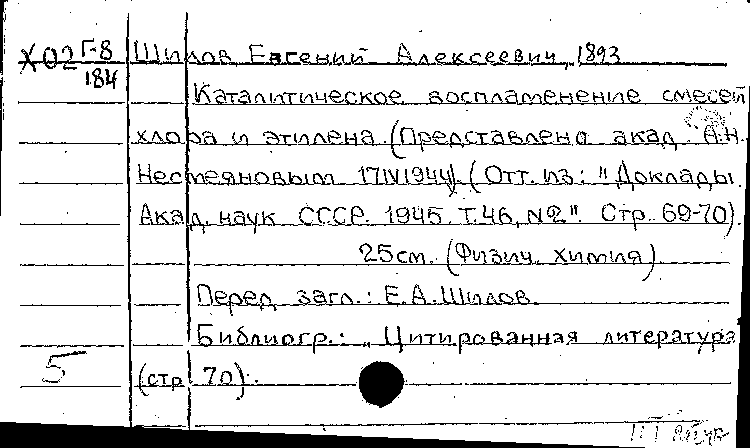 Х02 Г-8 Шилов Евгений Алексеевич, 1893
184
Каталитическое воспламенение смесей
хлора и этилена. (Представлено акад. А.Н.
Несмеяновым 17IV1944). (Отт. из: "Доклады
Акад. наук СССР. 1945. Т.46, №2". Стр. 69-70).
25см. (Физич. химия).
Перед загл.: Е.А.Шилов.
Библиогр.: „Цитированная литература
5 (стр. 70).